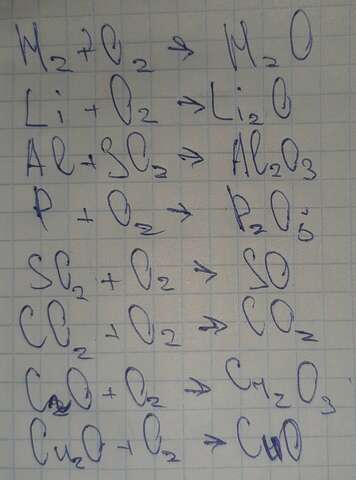 H₂ + O₂ → H₂O
Li + O₂ → Li₂O
Al + SO₂ → Al₂O₃
P + O₂ → P₂O₅
SO₂ + O₂ → SO
CO₂ + O₂ → CO₂
O + O₂ → Cr₂O₃
Cu₂O + O₂ → CuO